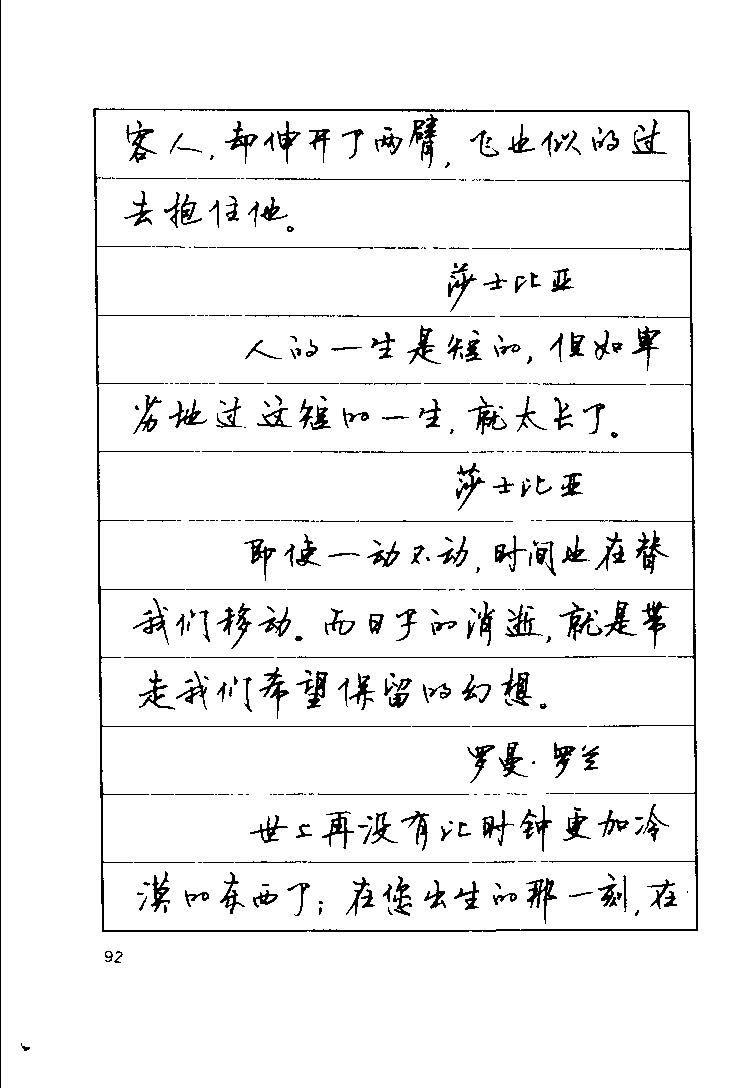 客人，却伸开了两臂，飞也似的过
去抱住他。
莎士比亚
人的一生是短的，但如卑
劣地过这短的一生，就太长了。
莎士比亚
即使一动不动，时间也在替
我们移动。而日子的消逝，就是带
走我们希望保留的幻想。
罗曼·罗兰
世上再没有比时钟更加冷
漠的东西了；在您出生的那一刻，在
92